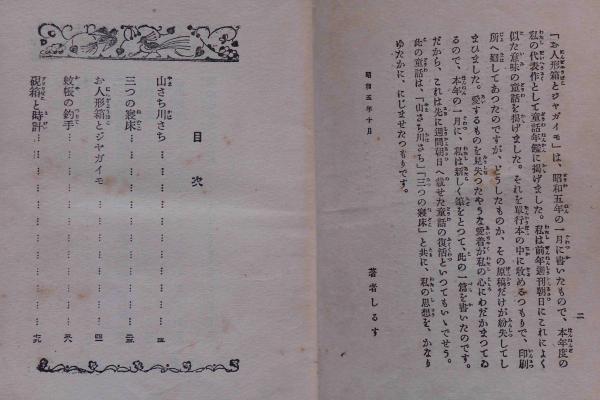 二
「お人形箱とジャガイモ」は、昭和五年の一月に書いたもので、本年度の
私の代表作として童話年鑑に掲げました。私は前年週刊朝日にこれによく
似た意味の童話を掲げました。それを單行本の中に收めるつもりで、印刷
所へ廻してあつたのですが、どうしたものか、その原稿だけが紛失してし
まひました。愛するものを見失つたやうな愛着が私の心にわだかまつてゐ
るので、本年の一月に、私は新しく筆をとつて、此の一篇を書いたのです。
だから、これは先に週間朝日へ載せた童話の復活といつてもいゝでせう。
此の童話は、「山さち川さち」「三つの寢床」と共に、私の思想を、かなり
ゆたかに、にじませたつもりです。
昭和五年十月
著者しるす
目次
山さち川さち
三つの寢床
お人形箱とジャガイモ
蚊帳の釣手
硯箱と時計